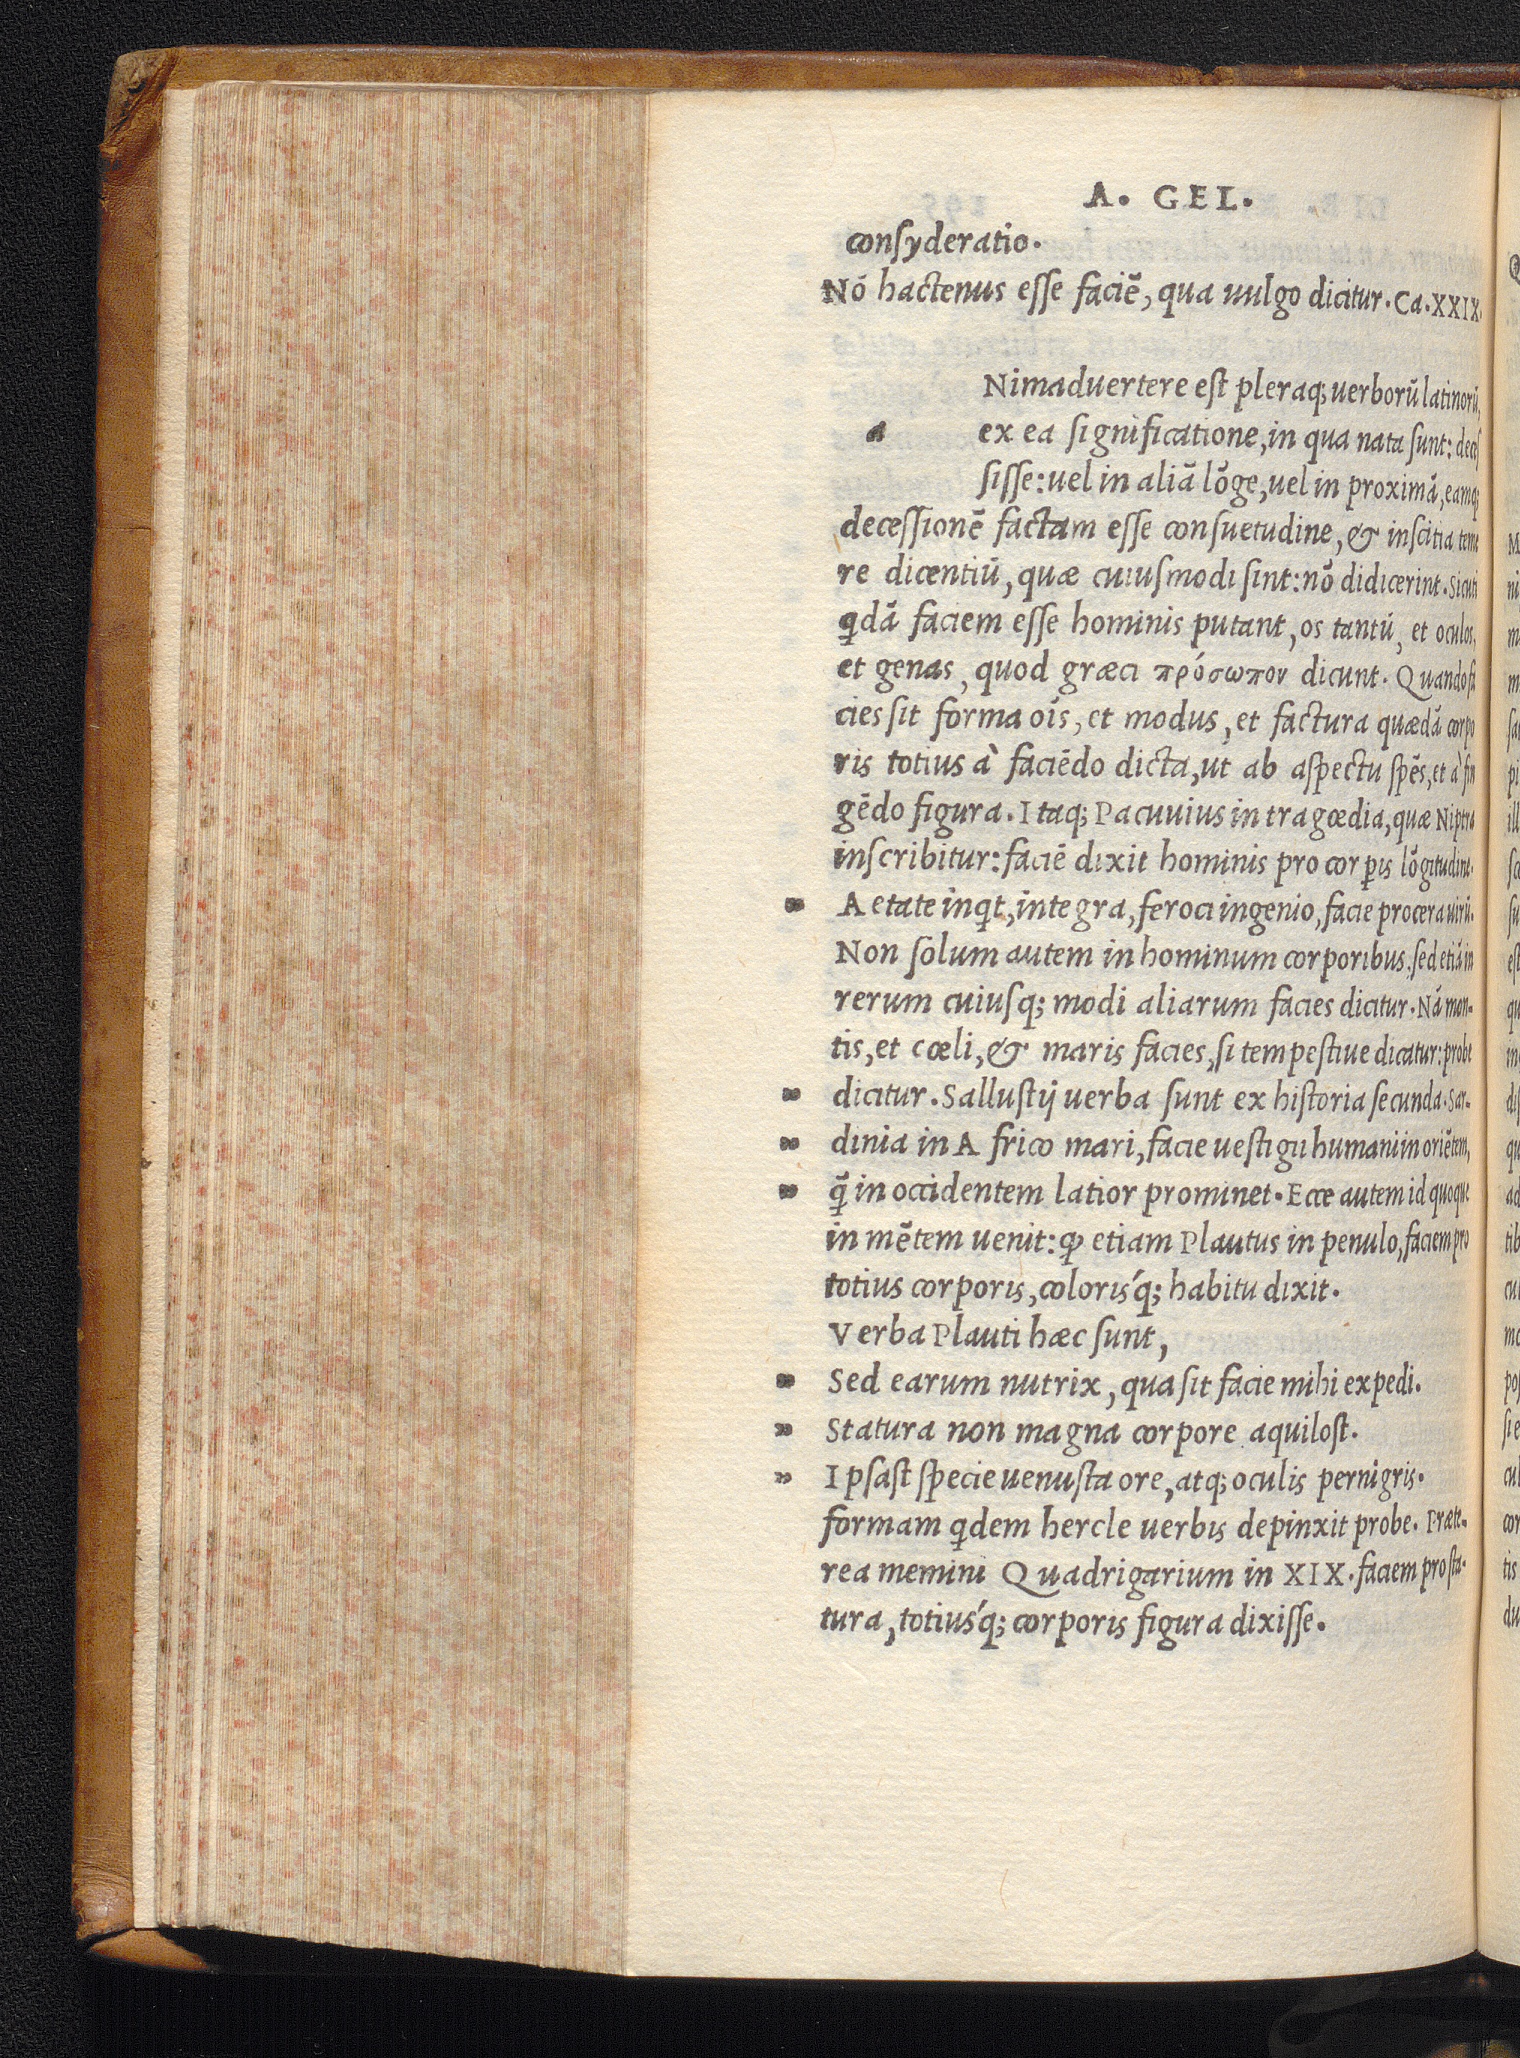 A. GEL.
consyderatio.
Nō hactenus esse faciē, qua uulgo dicitur. Ca. XXIX.
Nimaduertere est pleraq; uerborū latinorū,
a ex ea significatione, in qua nata sunt: deces
sisse: uel in aliā lōge, uel in proximā, eamq;
decessionē factam esse consuetudine, & inscitia teme
re dicentiū, quæ cuiusmodi sint: nō didicerint. Sicuti
qdā faciem esse hominis putant, os tantū, et oculos,
et genas, quod græci πρόσωπον dicunt. Quando fa
cies sit forma oīs, et modus, et factura quædā corpo
ris totius à faciēdo dicta, ut ab aspectu spēs, et à fin
gēdo figura. Itaq; Pacuuius in tragœdia, quæ Niptra
inscribitur: faciē dixit hominis pro corꝑis lōgitudine.
” Aetate inqt, integra, feroci ingenio, facie procera uirū.
Non solum autem in hominum corporibus. sed etiā in
rerum cuiusq; modi aliarum facies dicitur. Nā mon-
tis, et cœli, & maris facies, si tempestiue dicatur: probe
” dicitur. Sallustij uerba sunt ex historia secunda. Sar-
” dinia in Africo mari, facie uestigii humani in oriētem,
” q̄ in occidentem latior prominet. Ecce autem id quoque
in mētem uenit: ꝙ etiam Plautus in penulo, faciem pro
totius corporis, coloris'q; habitu dixit.
Verba Plauti hæc sunt,
” Sed earum nutrix, qua sit facie mihi expedi.
” Statura non magna corpore aquilost.
” Ipsast specie uenusta ore, atq; oculis pernigris.
formam qdem hercle uerbis depinxit probe. Præte-
rea memini Quadrigarium in XIX. faciem pro sta-
tura, totius'q; corporis figura dixisse.